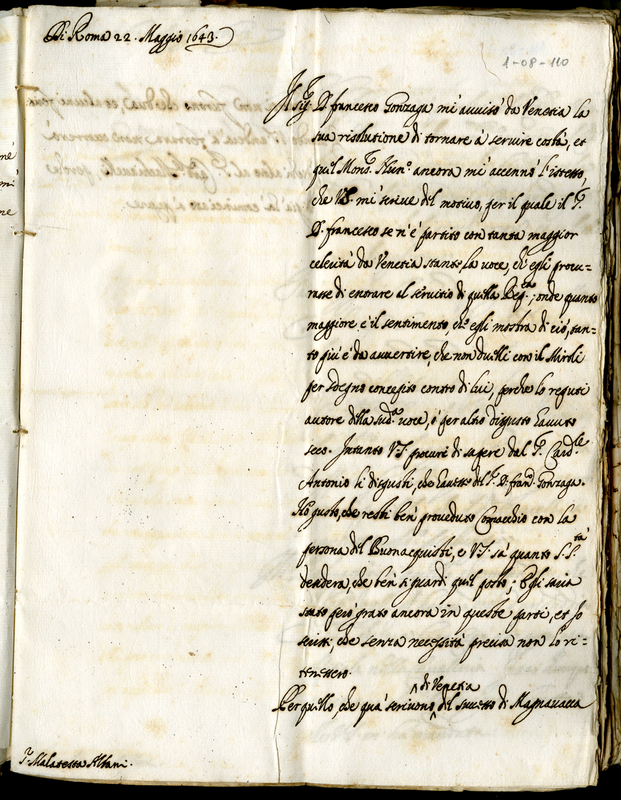 Di Roma 22. Maggio 1643.
1-08-110
Il Sig.r D. Francesco Gonzaga mi avvisò da Venetia la
sua risolutione di tornare à servire costà, et
quel Mons.r Nun.o ancora mi accennò l'istesso,
che VS. mi scrive del motivo, per il quale il S.r
D. Francesco se n'è partito con tanta maggior
celerità da Venetia stante la voce, ch'egli procu-
rasse di entrare al servitio di quella Rep.ca; onde quanto
maggiore è il sentimento, ch'egli mostra di ciò, tan-
to più è da avvertire, che non duelli con il Miroli
per sdegno concepito contro di lui, perche lo reputi
autore della sud.a voce, ò per altro disgusto havuto
seco. Intanto VS. procuri di sapere dal S.r Card.le
Antonio li disgusti, che havesse del S.r D. Fran.co Gonzaga.
Hò gusto, che resti ben proveduto Comacchio con la
persona del Buonacquisti, e VS. sà quanto S. S.tà
desidera, che ben si guardi quel posto; Egli saria
stato però grato ancora in queste parti, et Io
scrissi, che senza necessità precisa non lo ri-
tenessero.
Per quello, che quà scrivono di Venetia del successo di Magnavacca
S.r Malatesta Albani.
né
mi
ne